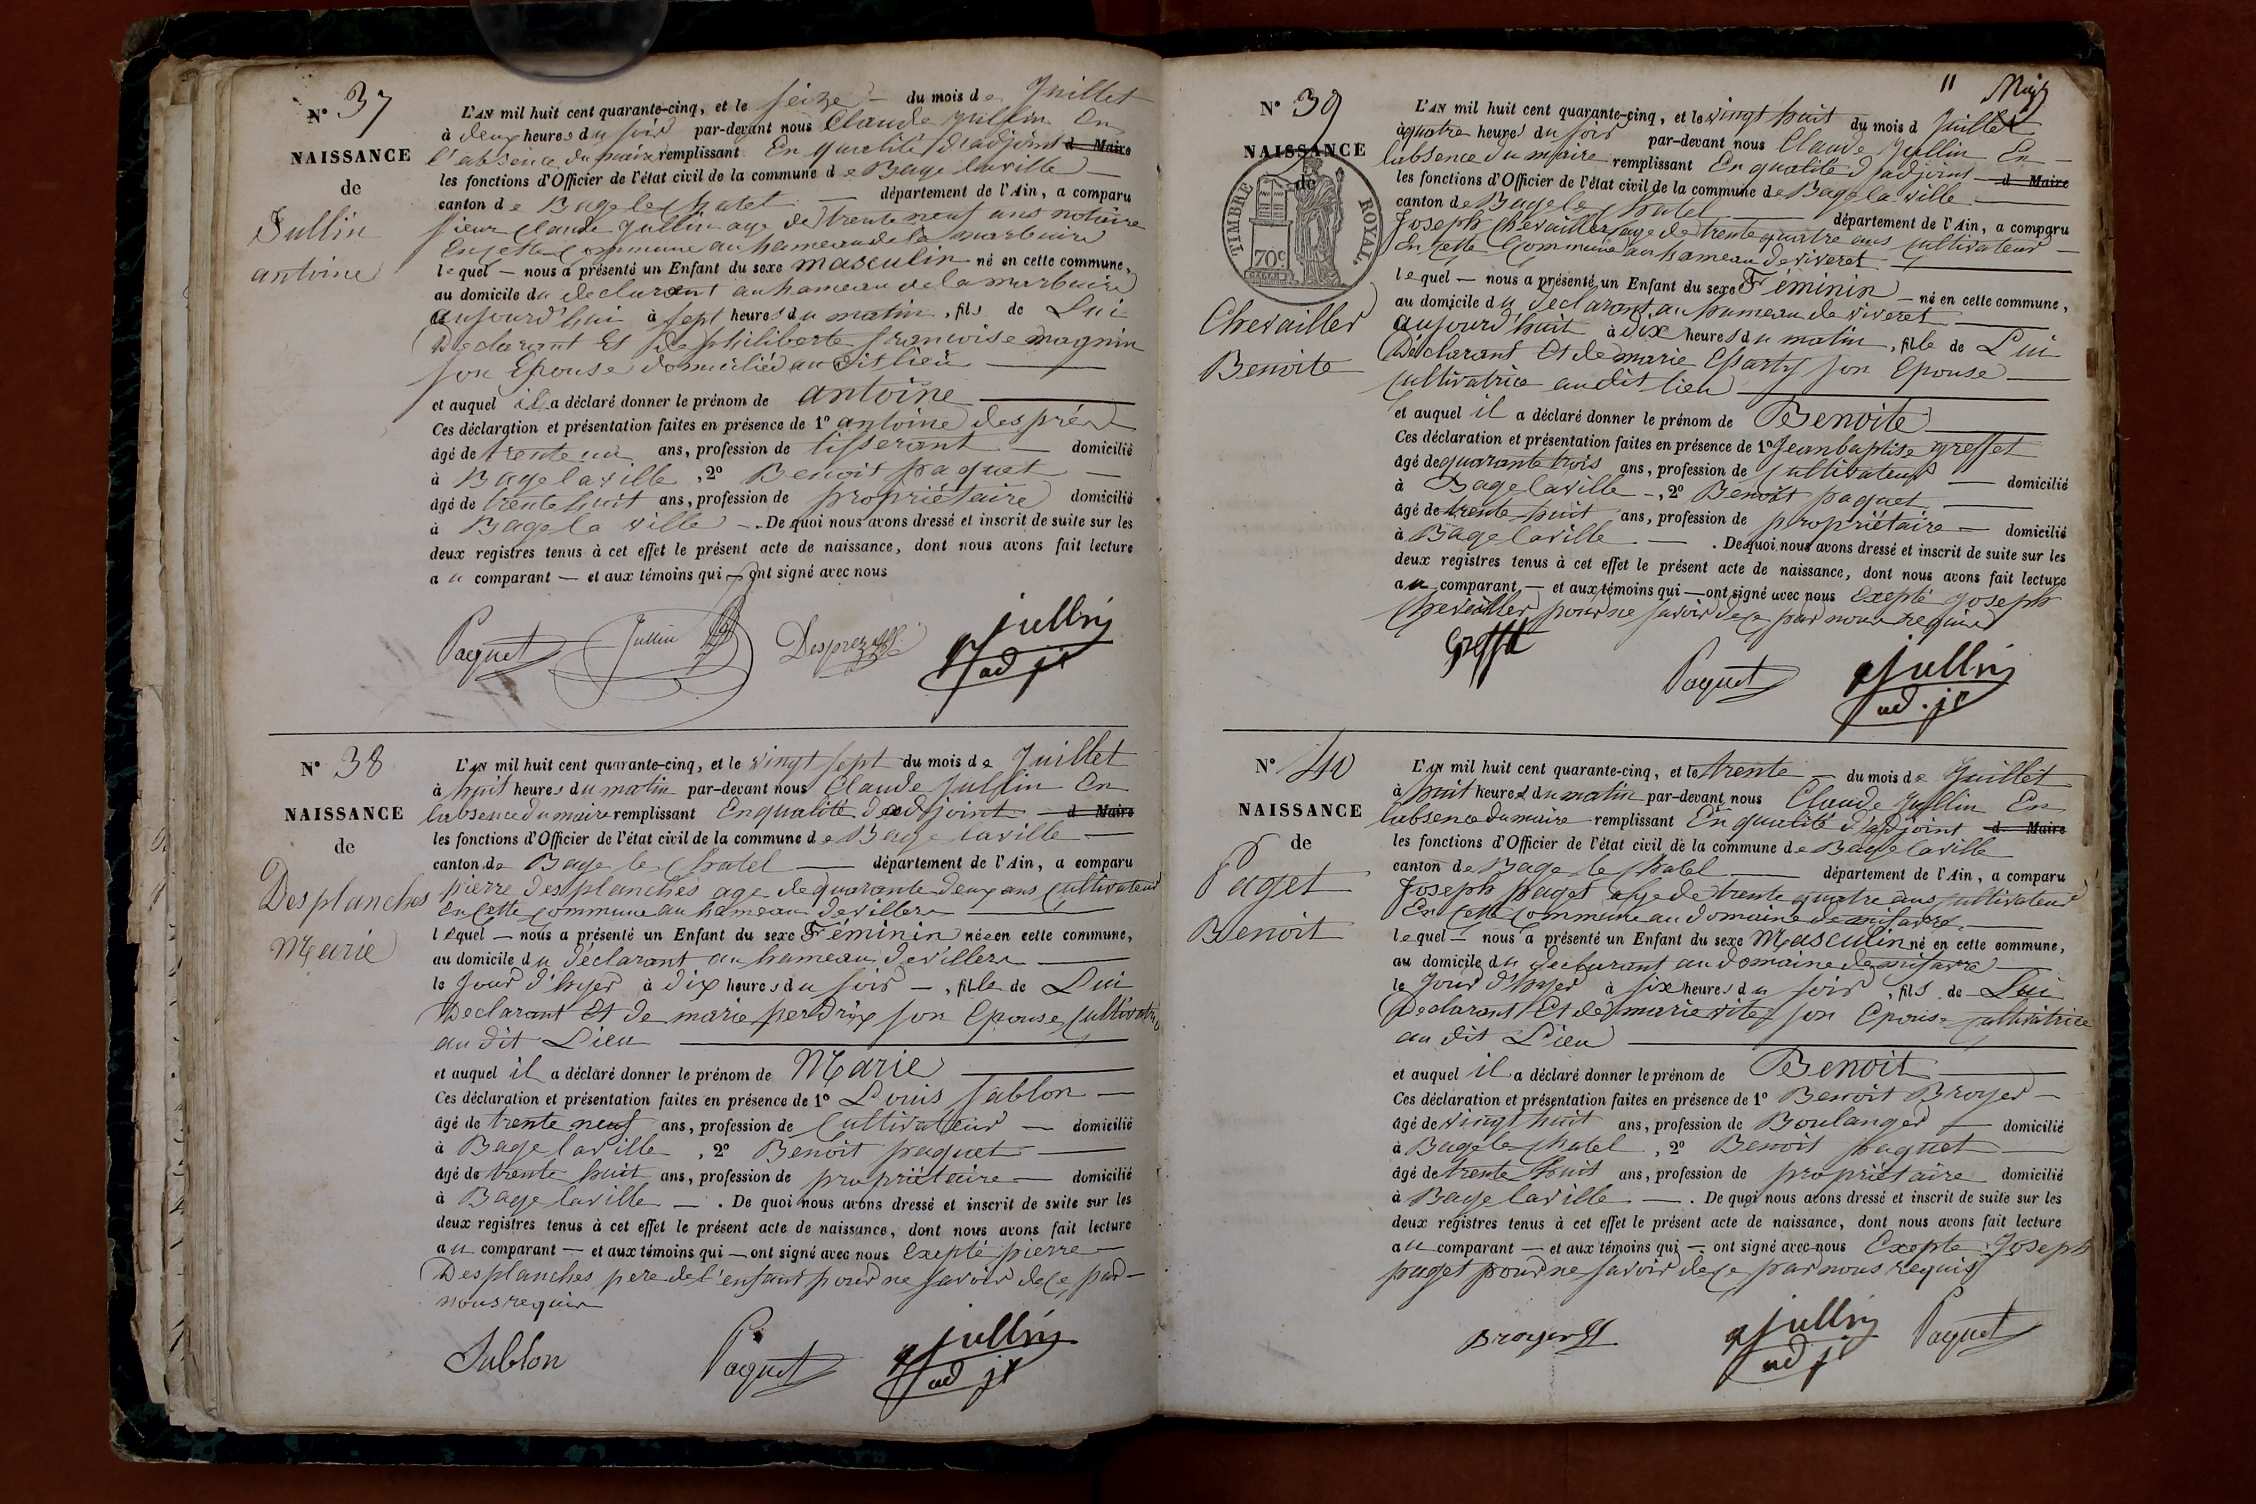 N° 37
NAISSANCE
de
Jullin
antoine
L'AN mil huit cent quarante-cinq, et le seize du mois de Juillet
à deux heures du soir par-devant nous Claude Jullin En
l'absence du maire remplissant En qualité d'adjoint d Maire
les fonctions d'Officier de l'état civil de la commune de Bage laville
canton de Bage le Chatel département de l'Ain, a comparu
sieur Claude Jullin age de trente neuf ans notaire
En cette Commune au hameau de la marbuire
lequel — nous a présenté un Enfant du sexe masculin né en cette commune,
au domicile du declarant au hameau de la marbuire
aujourd'hui à sept heures du matin, fils de Lui
Declarant Et de philiberte francoise magnin
son Epouse domicilié au dit lieu
et auquel il a déclaré donner le prénom de antoine
Ces déclaration et présentation faites en présence de 1° antoine despré
âgé de trente un ans, profession de tisserant domicilié
à Bage laville, 2° Benoit paquet
âgé de trente huit ans, profession de propriétaire domicilié
à Bage la ville — . De quoi nous avons dressé et inscrit de suite sur les
deux registres tenus à cet effet le présent acte de naissance, dont nous avons fait lecture
au comparant — et aux témoins qui — ont signé avec nous
Paquet Jullin Desprez Jullin
adjt
N° 38
NAISSANCE
de
Desplanches
Marie
L'AN mil huit cent quarante-cinq, et le vingt sept du mois de Juillet
à huit heures du matin par-devant nous Claude Jullin En
labsence du maire remplissant En qualité d'adjoint d Maire
les fonctions d'Officier de l'état civil de la commune de Bage laville
canton de Bage le Chatel département de l'Ain, a comparu
pierre desplanches age de quarante deux ans Cultivateur
En cette commune au hameau de villers
lequel — nous a présenté un Enfant du sexe Féminin née en cette commune,
au domicile du declarant au hameau de villers
le Jour d'hyer à dix heures du soir —, fille de Lui
Declarant Et de marie perdrix son Epouse Cultivatrice
au dit Lieu
et auquel il a déclaré donner le prénom de Marie
Ces déclaration et présentation faites en présence de 1° Louis Sablon
âgé de trente neuf ans, profession de Cultivateur domicilié
à Bage laville, 2° Benoit paquet
âgé de trente huit ans, profession de propriétaire domicilié
à Bage laville — . De quoi nous avons dressé et inscrit de suite sur les
deux registres tenus à cet effet le présent acte de naissance, dont nous avons fait lecture
au comparant — et aux témoins qui — ont signé avec nous Exepté pierre
Desplanches pere de l'enfant pour ne savoir de ce par
nous requis
Sablon Paquet Jullin
adjt
11
N° 39
NAISSANCE
de
TIMBRE ROYAL
70c
Chevailler
Benoite
L'AN mil huit cent quarante-cinq, et le vingt huit du mois d Juillet
à quatre heures du soir par-devant nous Claude Jullin En
labsence du maire remplissant En qualité d'adjoint d Maire
les fonctions d'Officier de l'état civil de la commune de Bage la ville
canton de Bage le Chatel département de l'Ain, a comparu
Joseph Chevailler age de trente quatre ans Cultivateur
En cette Commune au hameau de viveret
lequel — nous a présenté un Enfant du sexe Féminin — né en cette commune,
au domicile du declarant au hameau de viveret
aujourd'huit à dix heures du matin, fille de Lui
Déclarant Et de marie Essarty son Epouse
Cultivatrice audit lieu
et auquel il a déclaré donner le prénom de Benoite
Ces déclaration et présentation faites en présence de 1° Jean baptiste greffet
âgé de quarante trois ans, profession de Cultivateur domicilié
à Bage laville —, 2° Benoit paquet
âgé de trente huit ans, profession de propriétaire — domicilié
à Bage laville — . De quoi nous avons dressé et inscrit de suite sur les
deux registres tenus à cet effet le présent acte de naissance, dont nous avons fait lecture
au comparant — et aux témoins qui — ont signé avec nous Exepté Joseph
Chevailler pour ne savoir de ce par nous requis
Greffet Paquet Jullin
adjt
N° 40
NAISSANCE
de
Paget
Benoit
L'AN mil huit cent quarante-cinq, et le trente du mois de Juillet
à huit heures du matin par-devant nous Claude Jullin En
labsence du maire remplissant En qualité d'adjoint d Maire
les fonctions d'Officier de l'état civil de la commune de Bage laville
canton de Bage le Chatel département de l'Ain, a comparu
Joseph paget age de trente quatre ans Cultivateur
En cette Commune au domaine de
lequel — nous a présenté un Enfant du sexe Masculin né en cette commune,
au domicile du declarant au domaine de
le Jour d'hyer à six heures du soir, fils de Lui
Declarant Et de marie vitte son Epouse Cultivatrice
au dit Lieu
et auquel il a déclaré donner le prénom de Benoit
Ces déclaration et présentation faites en présence de 1° Benoit Broyer
âgé de vingt huit ans, profession de Boulanger domicilié
à Bage le Chatel, 2° Benoit paquet
âgé de trente huit ans, profession de propriétaire domicilié
à Bage laville — . De quoi nous avons dressé et inscrit de suite sur les
deux registres tenus à cet effet le présent acte de naissance, dont nous avons fait lecture
au comparant — et aux témoins qui — ont signé avec nous Exepte Joseph
paget pour ne savoir de ce par nous requis
Broyer Jullin Paquet
adjt